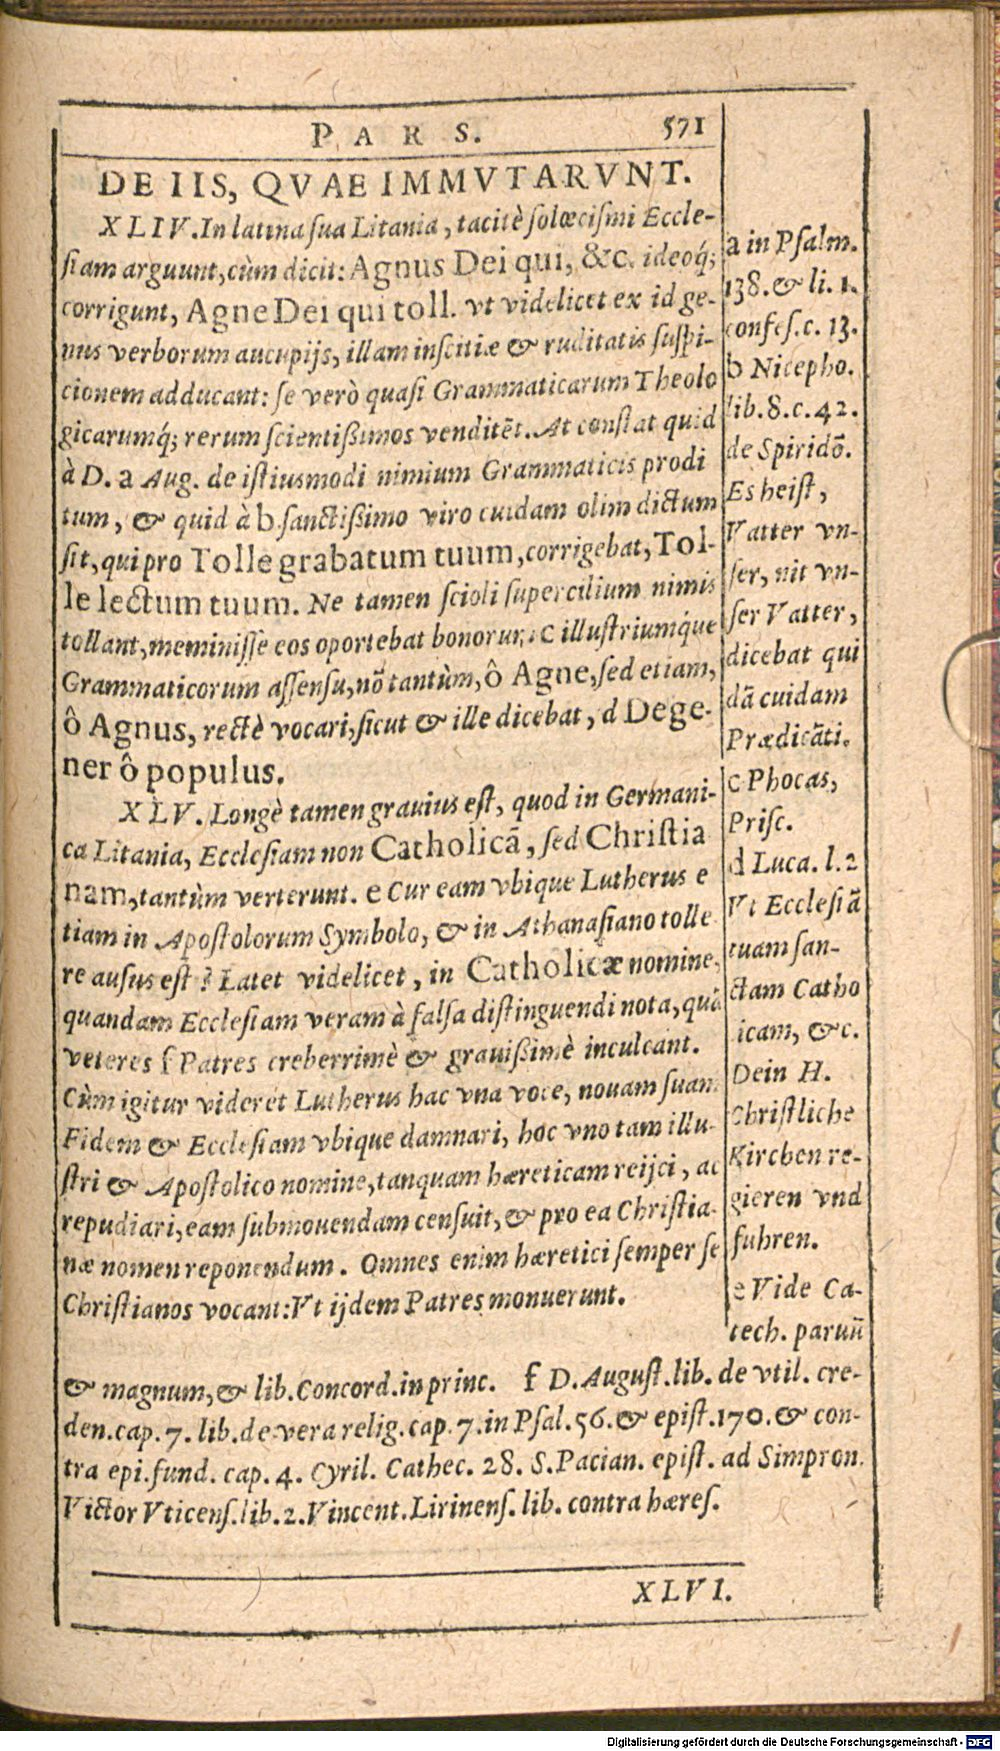 PARS. 571
DE IIS, QVAE IMMVTARVNT.
XLIV. In latina sua Litania, tacitè solœcismi Eccle-
siam arguunt, cùm dicit: Agnus Dei qui, &c. ideoq́;
corrigunt, Agne Dei qui toll. vt videlicet ex id ge-
nus verborum aucupijs, illam inscitiæ & ruditatis suspi-
cionem adducant: se verò quasi Grammaticarum Theolo
gicarumq́; rerum scientißimos venditẽt. At constat quid
à D. a Aug. de istiusmodi nimium Grammaticis prodi
tum, & quid à b sanctißimo viro cuidam olim dictum
sit, qui pro Tolle grabatum tuum, corrigebat, Tol-
le lectum tuum. Ne tamen scioli supercilium nimis
tollant, meminisse eos oportebat bonorum c illustriumq́ue
Grammaticorum assensu, nõ tantùm, ô Agne, sed etiam,
ô Agnus, rectè vocari, sicut & ille dicebat, d Dege-
ner ô populus.
XLV. Longè tamen grauius est, quod in Germani-
ca Litania, Ecclesiam non Catholicã, sed Christia
nam, tantùm verterunt. e Cur eam vbique Lutherus e
tiam in Apostolorum Symbolo, & in Athanasiano tolle
re ausus est? Latet videlicet, in Catholicæ nomine,
quandam Ecclesiam veram à falsa distinguendi nota, quã
veteres f Patres creberrimè & grauißimè inculcant.
Cùm igitur videret Lutherus hac vna voce, nouam suam
Fidem & Ecclesiam vbique damnari, hoc vno tam illu-
stri & Apostolico nomine, tanquam hæreticam reijci, ac
repudiari, eam submouendam censuit, & pro ea Christia-
næ nomen reponendum. Omnes enim hæretici semper se
Christianos vocant: Vt ijdem Patres monuerunt.
a in Psalm.
138. & li. 1.
confes. c. 13.
b Nicepho.
lib. 8. c. 42.
de Spiridõ.
Es heist,
Vatter vn-
ser, nit vn-
ser Vatter,
dicebat qui
dã cuidam
Prædicãti.
c Phocas,
Prisc.
d Luca. l. 2
Vt Ecclesiã
tuam san-
ctam Catho
icam, &c.
Dein H.
Christliche
Kirchen re-
gieren vnd
fuhren.
e Vide Ca-
tech. paruũ
& magnum, & lib. Concord. in princ. f D. August. lib. de vtil. cre-
den. cap. 7. lib. de vera relig. cap. 7. in Psal. 56. & epist. 170. & con-
tra epi. fund. cap. 4. Cyril. Cathec. 28. S. Pacian. epist. ad Simpron.
Victor Vticens. lib. 2. Vincent. Lirinens. lib. contra hæres.
XLVI.
Digitalisierung gefördert durch die Deutsche Forschungsgemeinschaft - DFG